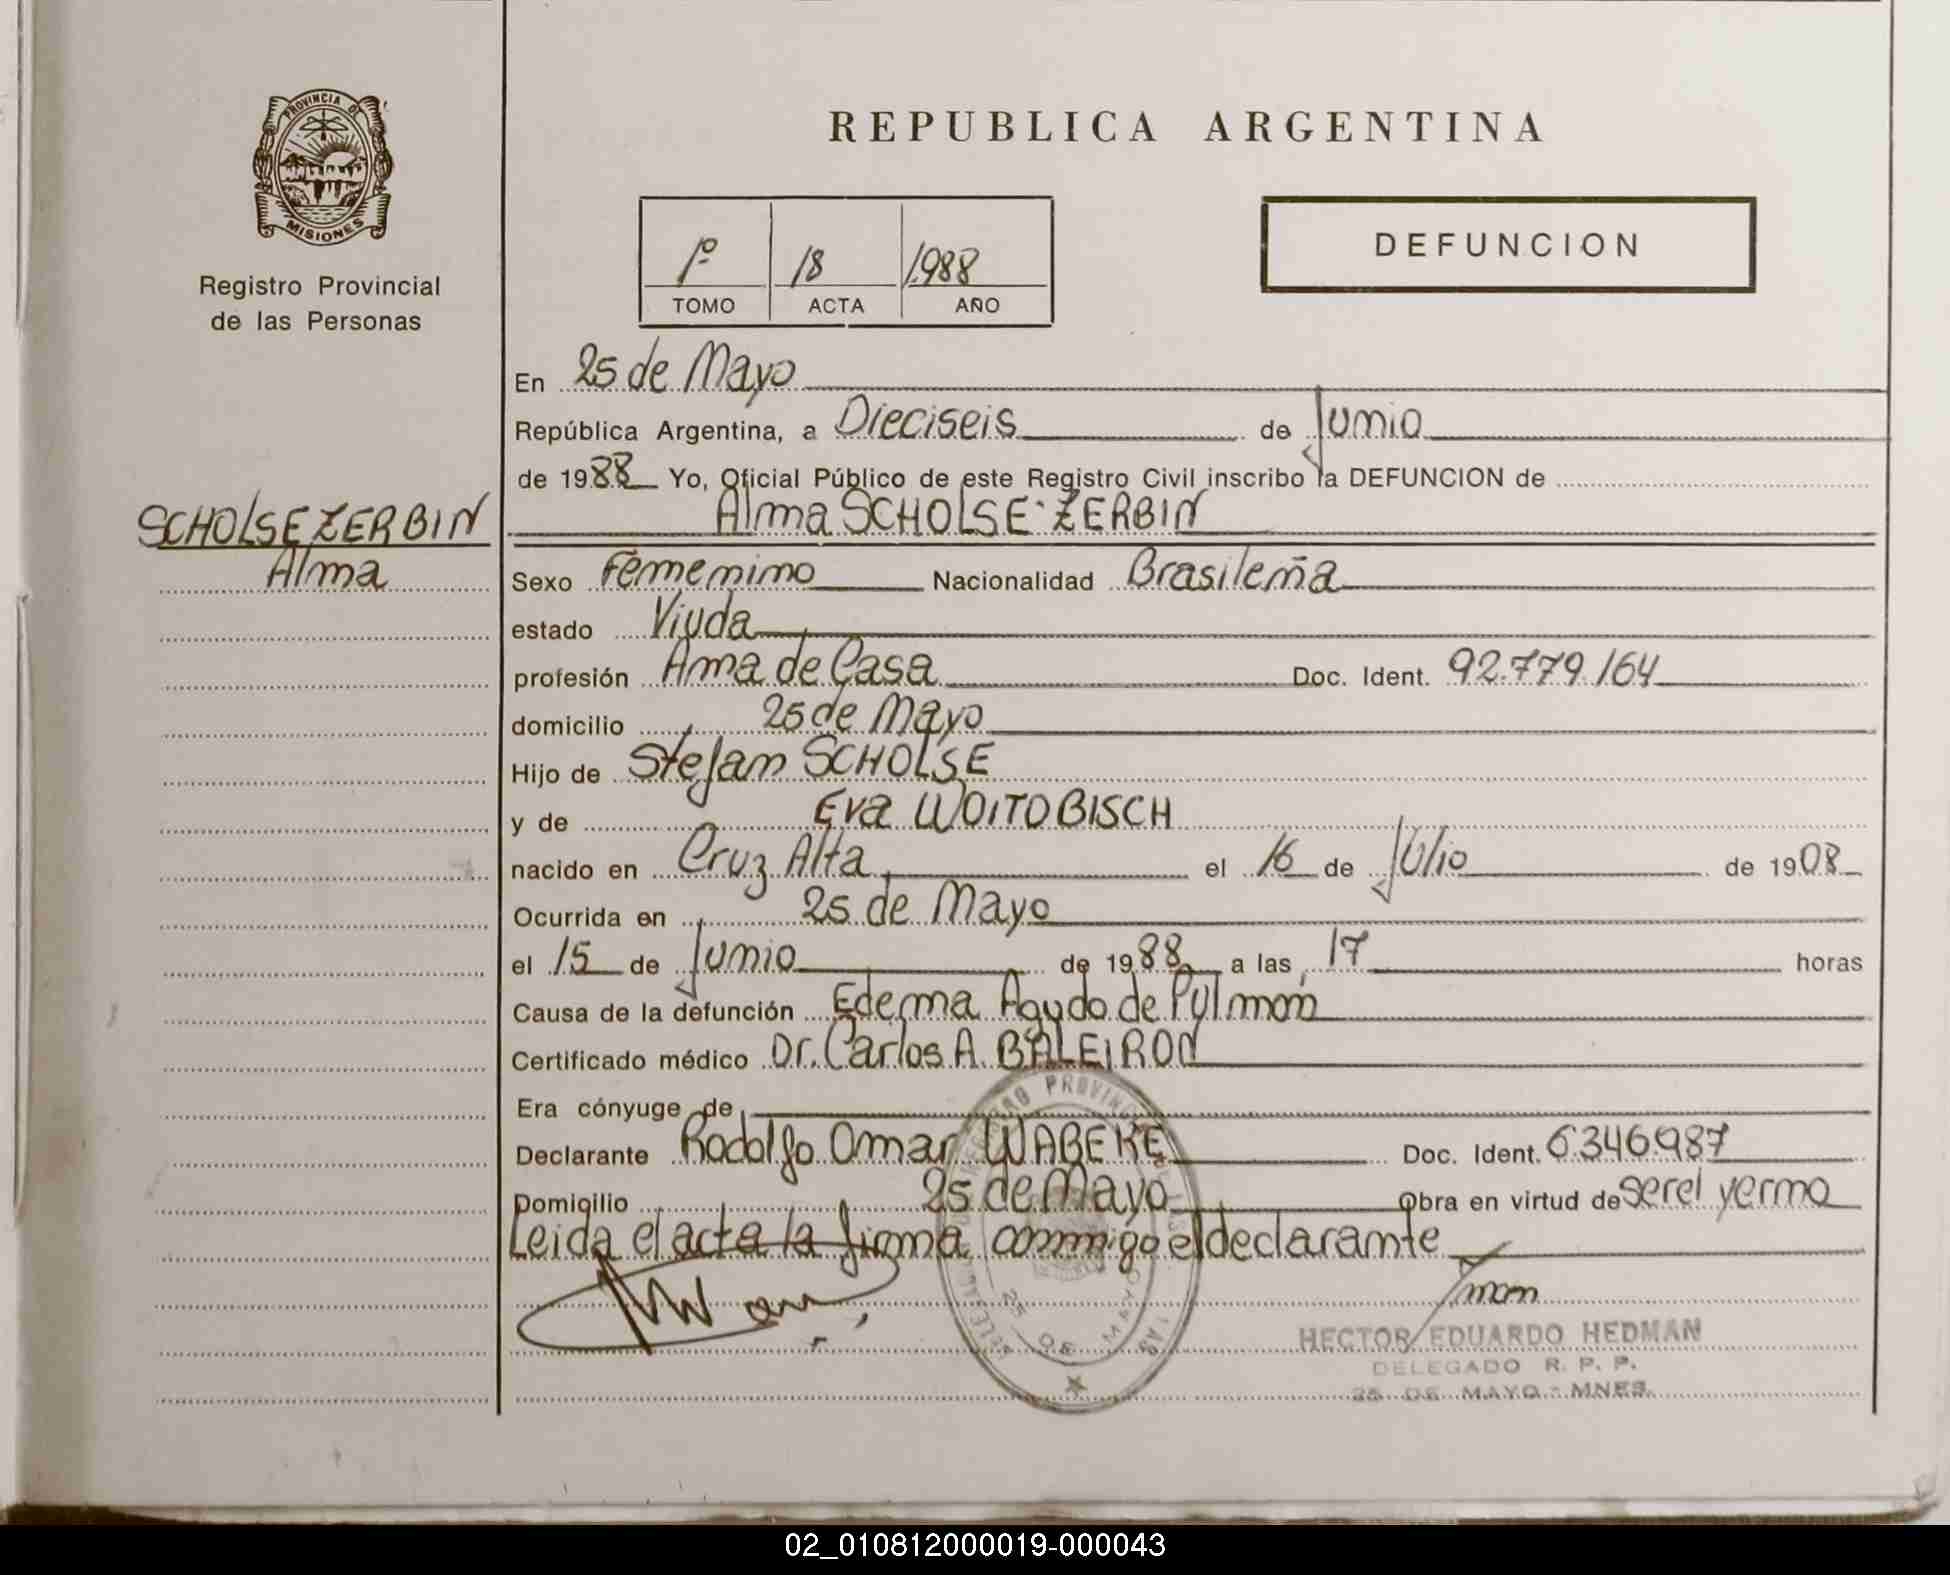 PROVINCIA D
MISIONES
Registro Provincial
de las Personas
REPUBLICA ARGENTINA
1º 18 1988
TOMO ACTA AÑO
DEFUNCION
En 25 de Mayo
República Argentina, a Dieciseis de Junio
de 1988 Yo, Oficial Público de este Registro Civil inscribo la DEFUNCION de
SCHOLSE ZERBIN
Alma
Alma SCHOLSE-ZERBIN
Sexo Femenino Nacionalidad Brasileña
estado Viuda
profesión Ama de Casa Doc. Ident. 92.779.164
domicilio 25 de Mayo
Hijo de Stefan SCHOLSE
y de Eva WOITOBISCH
nacido en Cruz Alta el 16 de Julio de 1908
Ocurrida en 25 de Mayo
el 15 de Junio de 1988 a las 17 horas
Causa de la defunción Edema Agudo de Pulmon
Certificado médico Dr. Carlos A. BALEIRON
Era cónyuge de
Declarante Rodolfo Omar WABEKE Doc. Ident. 6346987
Domicilio 25 de Mayo Obra en virtud de ser el yerno
Leida el acta la firma conmigo el declarante
HECTOR EDUARDO HEDMAN
DELEGADO R. P. P.
25 DE MAYO - MNES.
02_010812000019-000043